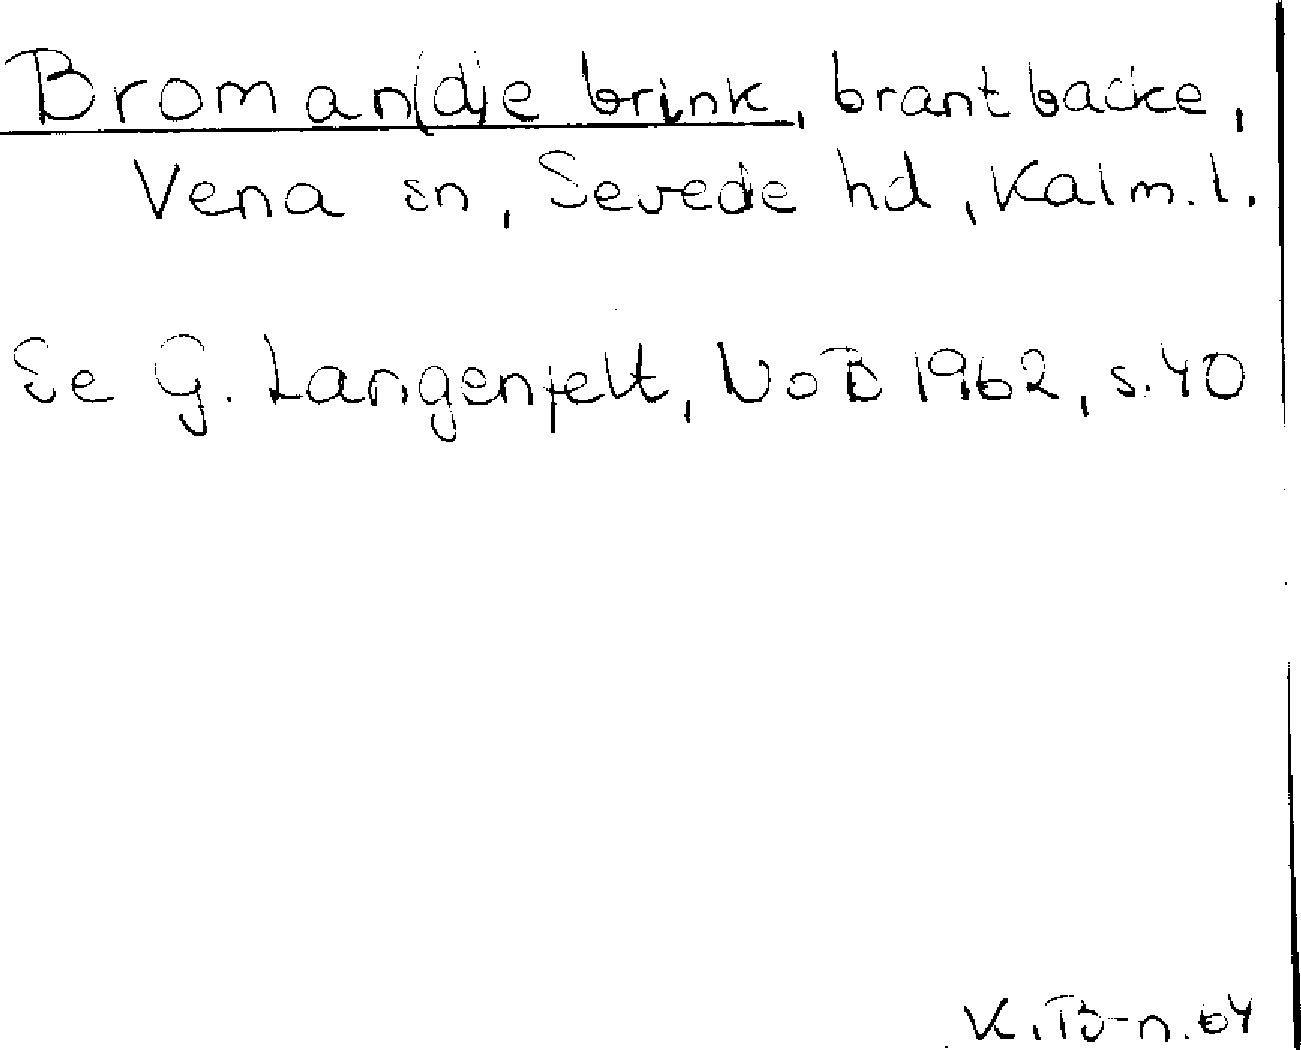 Broman(d)e brink, brant backe,
Vena sn, Sevede hd, Kalm. l.
Se G. Langenfelt, NoB 1962, s. 40
K. B-n. 64